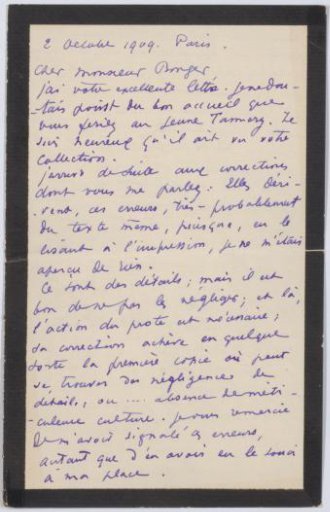 2 Octobre 1909. Paris.
Cher Monsieur Bonger
j'ai votre excellente lettre. je ne dou-
-tais point du bon accueil que
vous feriez au jeune Tannery. Je
suis heureux qu'il ait vu votre
collection.
j'arrive de suite aux corrections
dont vous me parlez. Elles déri-
-vent, ces erreurs, très-probablement
du texte même, puisque, en le
lisant à l'impression, je ne m'étais
aperçu de rien.
Ce sont des détails ; mais il est
bon de ne pas les négliger ; et là,
l'action du prote est nécessaire ;
sa correction achève en quelque
sorte la première copie où peut
se trouver des négligences de
détails, ou .... absence de méti-
-culeuse culture. je vous remercie
de m'avoir signalé ces erreurs,
autant que d'en avoir eu le souci
à ma place.